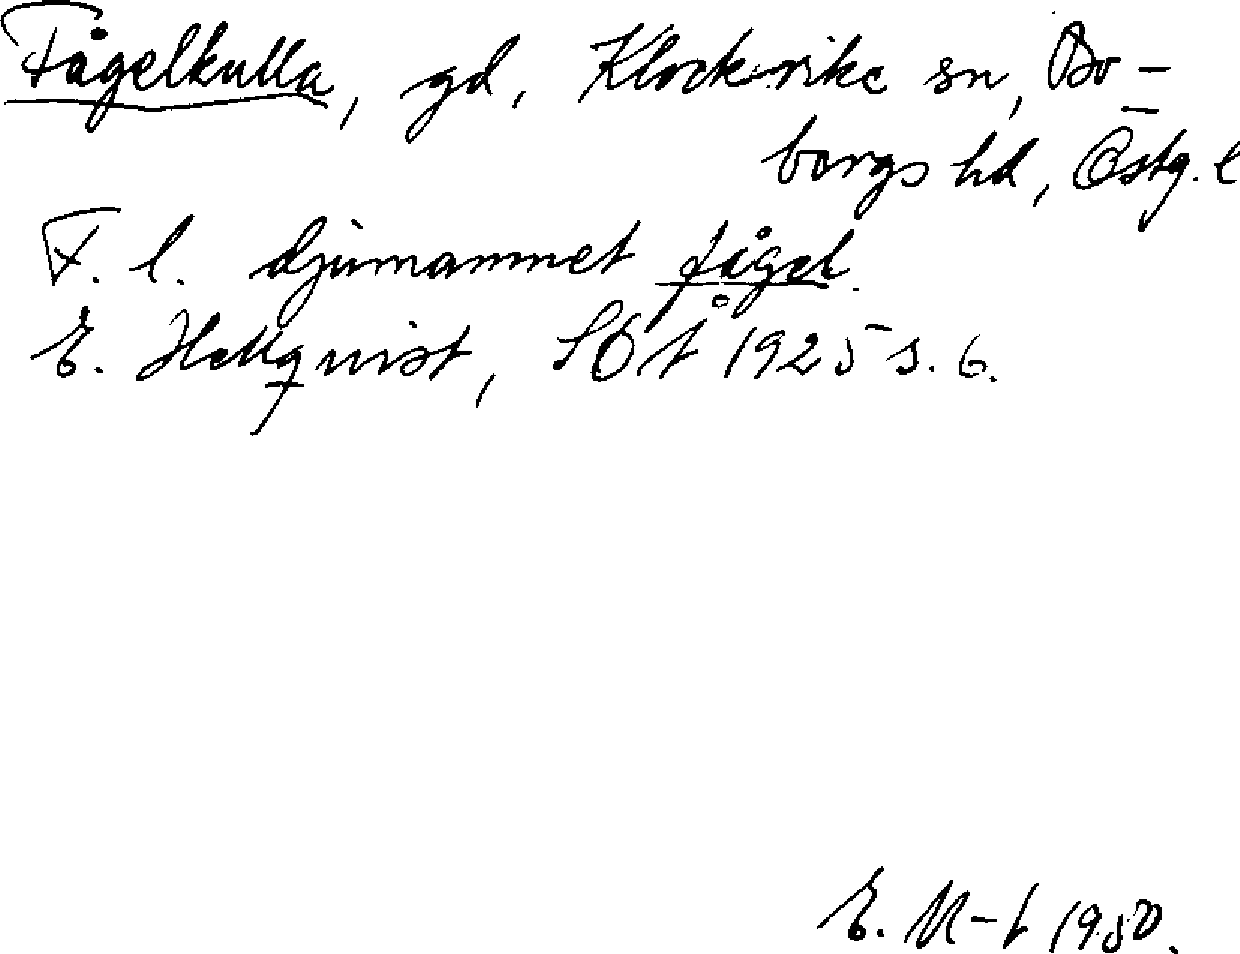 Fågelkulla, gd, Klockrike sn, Bo-
bergs hd, Östg. l
F. l. djurnamnet fågel.
E. Hellquist, SOÅ 1925 s. 6.
E. M-t 1950.